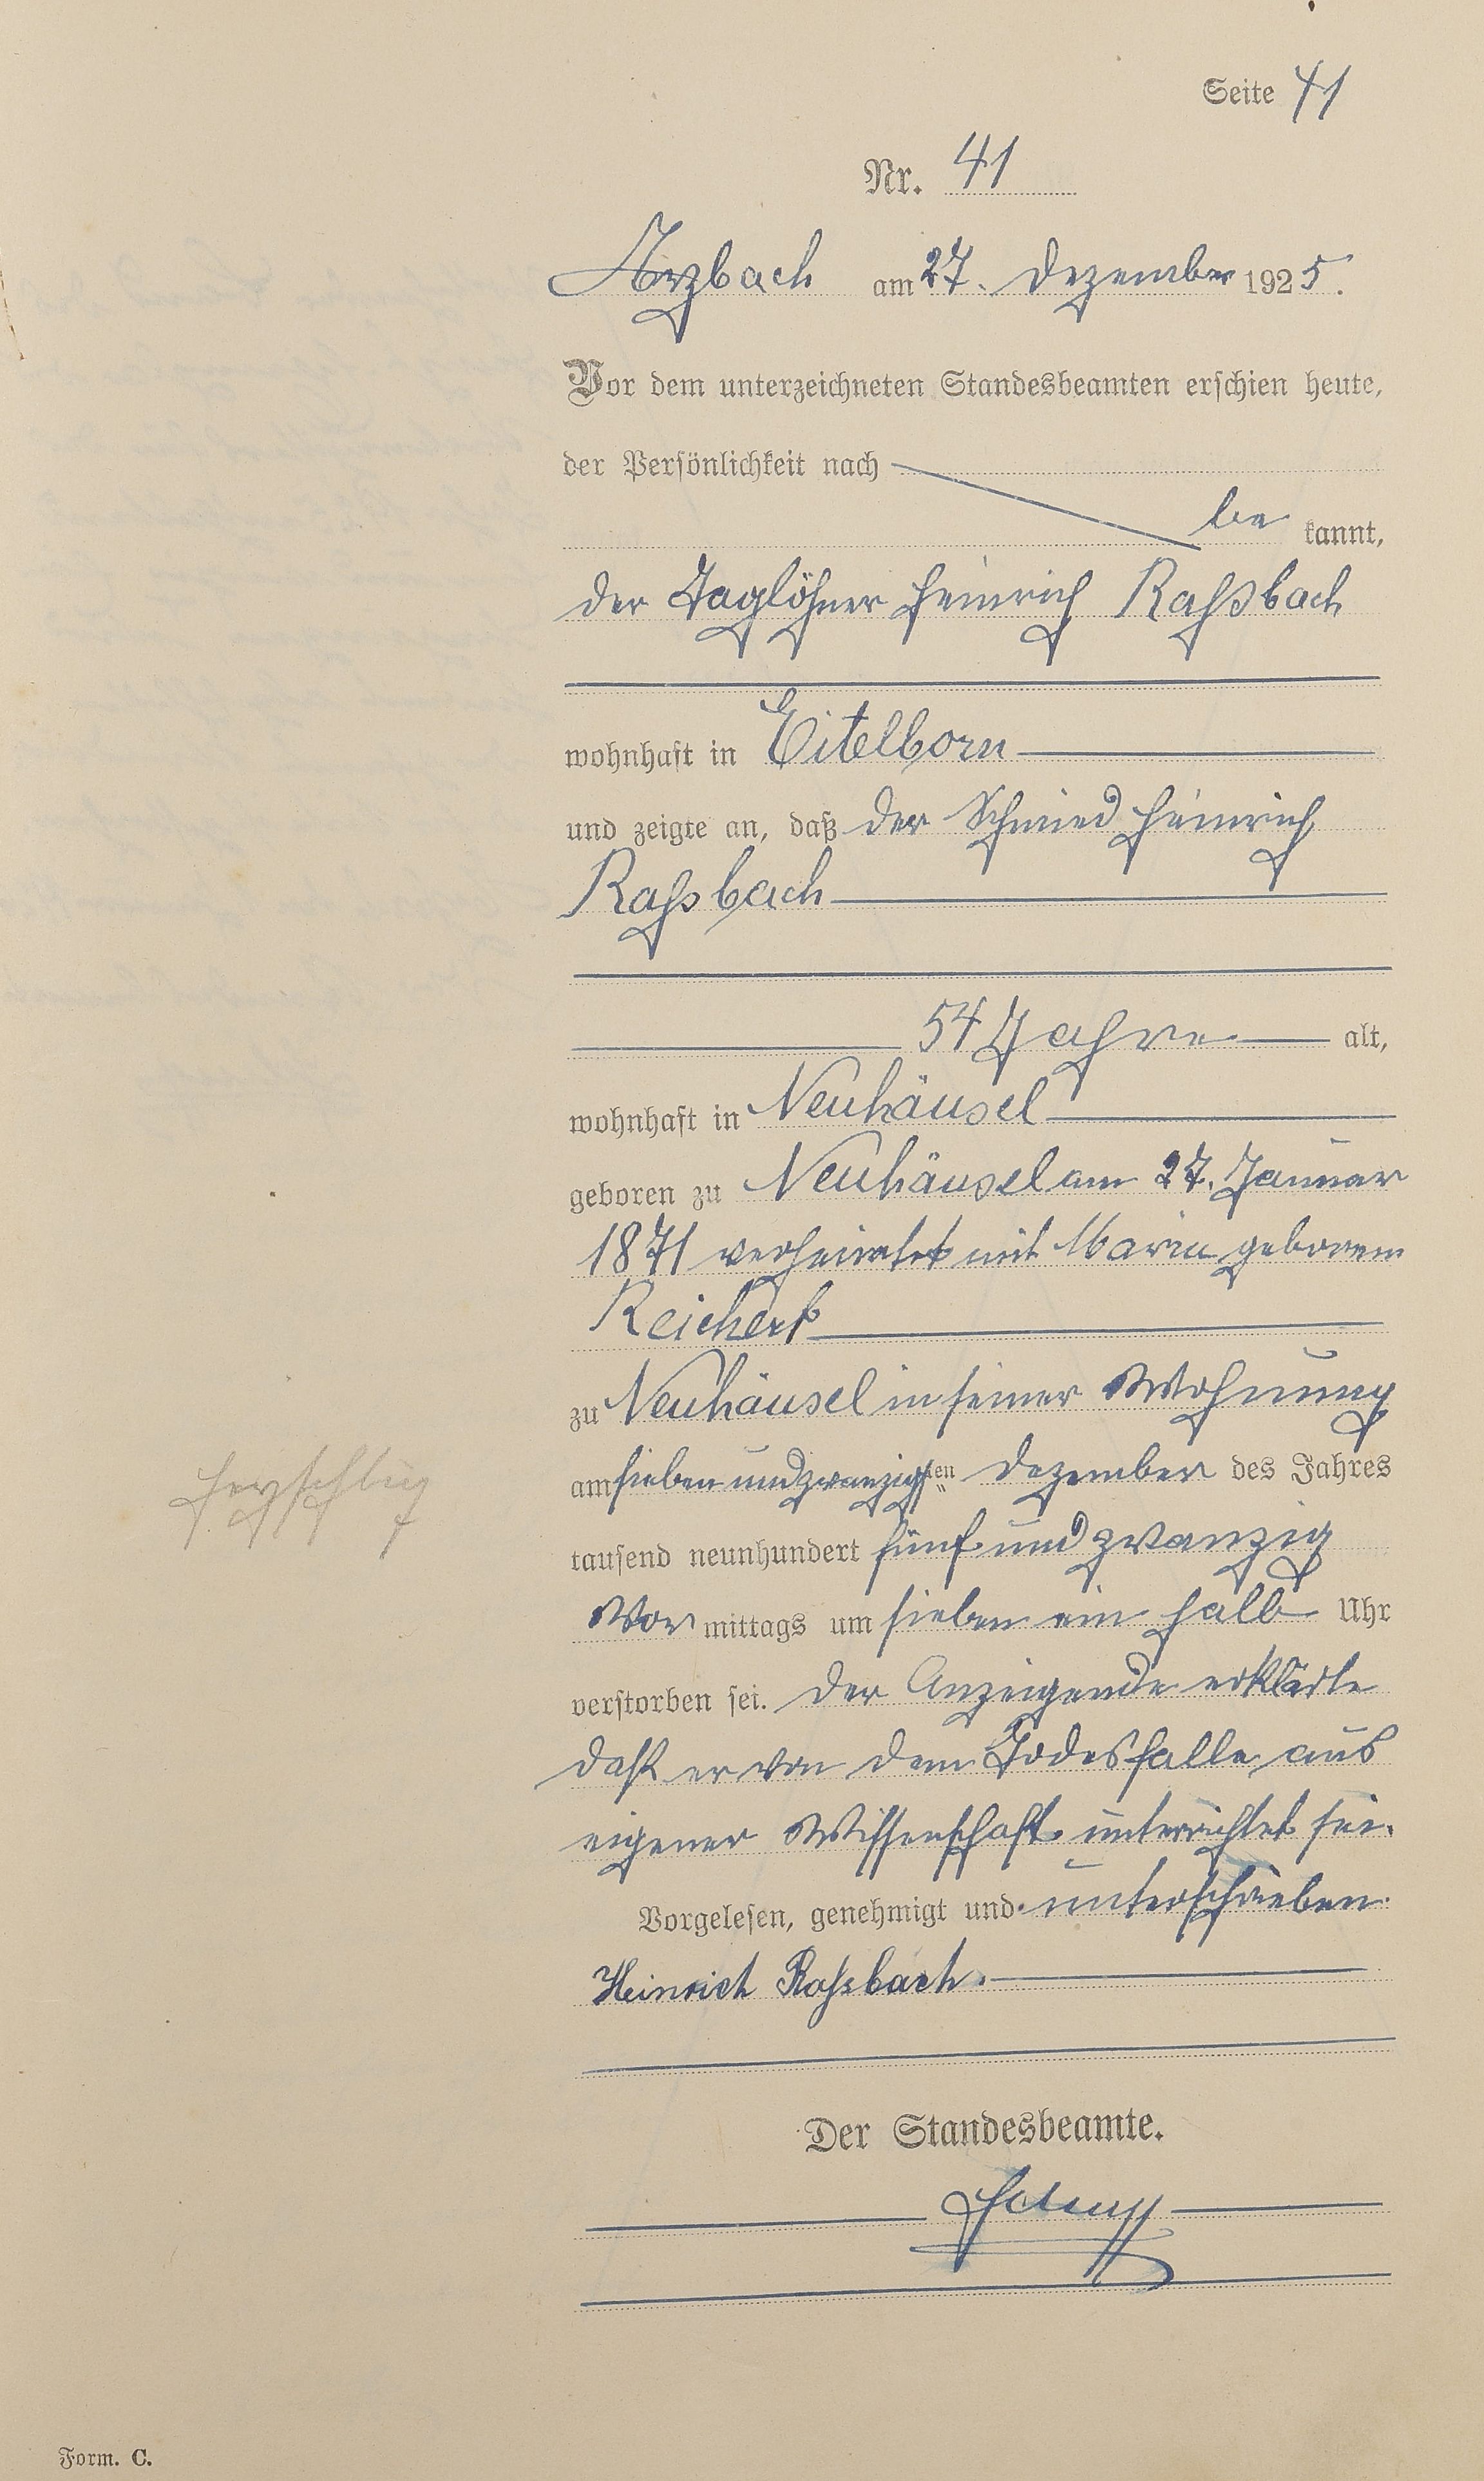 Seite 41
Nr. 41
Arzbach am 27. Dezember 1925.
Vor dem unterzeichneten Standesbeamten erschien heute,
der Persönlichkeit nach
be kannt,
der Taglöhner Heinrich Raßbach
wohnhaft in Eitelborn
und zeigte an, daß der Schmied Heinrich
Raßbach
54 Jahre alt,
wohnhaft in Neuhäusel
geboren zu Neuhäusel am 27. Januar
1871 verheiratet mit Maria geborenen
Reichert
zu Neuhäusel in seiner Wohnung
am sieben und zwanzigsten Dezember des Jahres
tausend neunhundert fünf und zwanzig
Vor mittags um sieben ein halb Uhr
verstorben sei. Der Anzeigende erklärte
daß er von dem Todesfalle aus
eigener Wissenschaft unterrichtet sei.
Vorgelesen, genehmigt und unterschrieben
Heinrich Raßbach.
Der Standesbeamte.
Form. C.